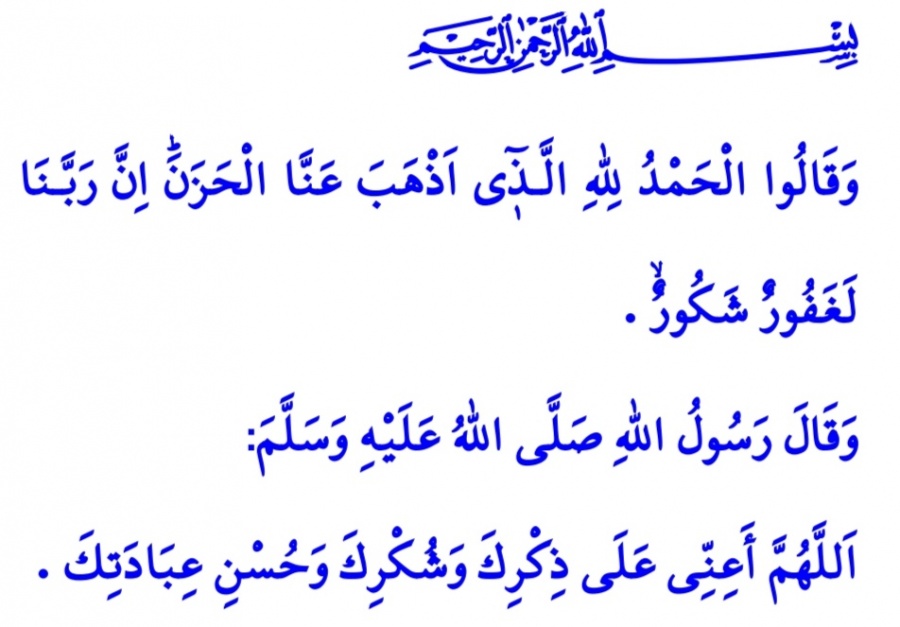 بِسْــــــــمِ اللّٰهِ الرَّحْمٰنِ الرَّحِيمِ
وَقَالُوا الْحَمْدُ لِلّٰهِ الَّـذ۪ٓى اَذْهَبَ عَنَّا الْحَزَنَۜ اِنَّ رَبَّـنَا
لَغَفُورٌ شَكُورٌۙ .
وَقَالَ رَسُولُ اللّٰهِ صَلَّى اللّٰهُ عَلَيْهِ وَسَلَّمَ:
اَللَّهُمَّ أَعِنِّى عَلَى ذِكْرِكَ وَشُكْرِكَ وَحُسْنِ عِبَادَتِكَ .